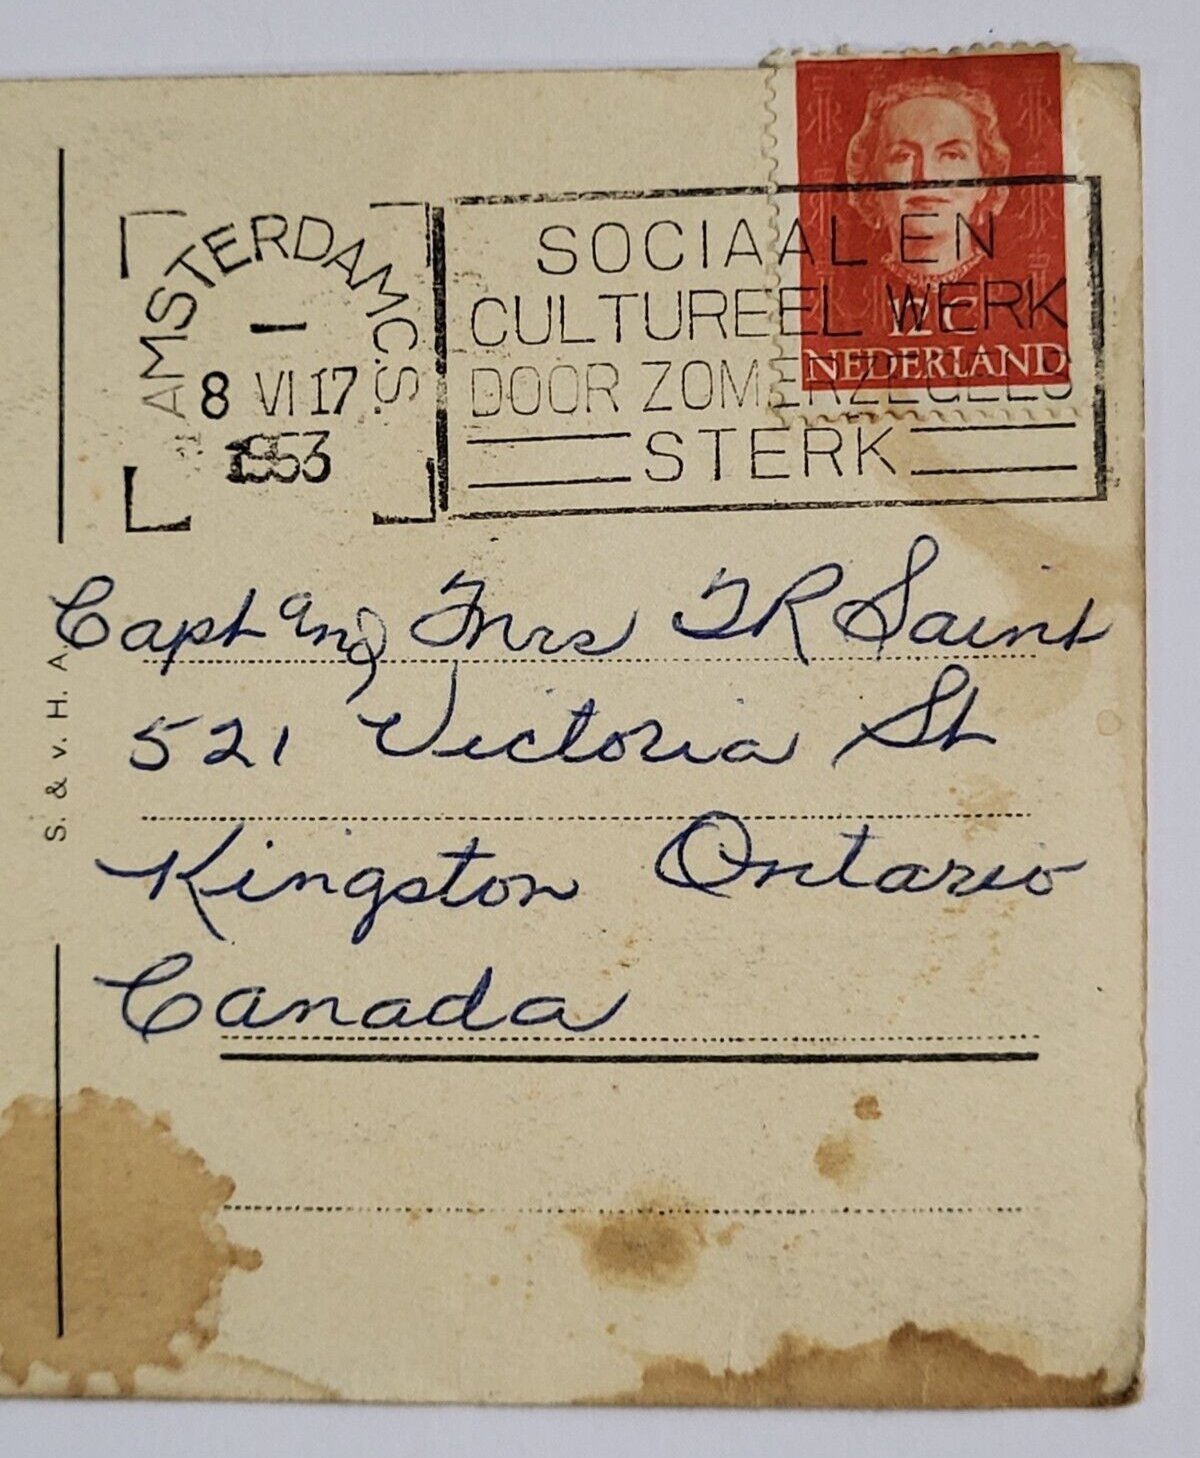 AMSTERDAM C.S.
I
8 VI 17
1953
SOCIAAL EN
CULTUREEL WERK
DOOR ZOMERZEGELS
STERK
12c
NEDERLAND
Capt and Mrs TR Saint
521 Victoria St
Kingston Ontario
Canada
S. & v. H. A.